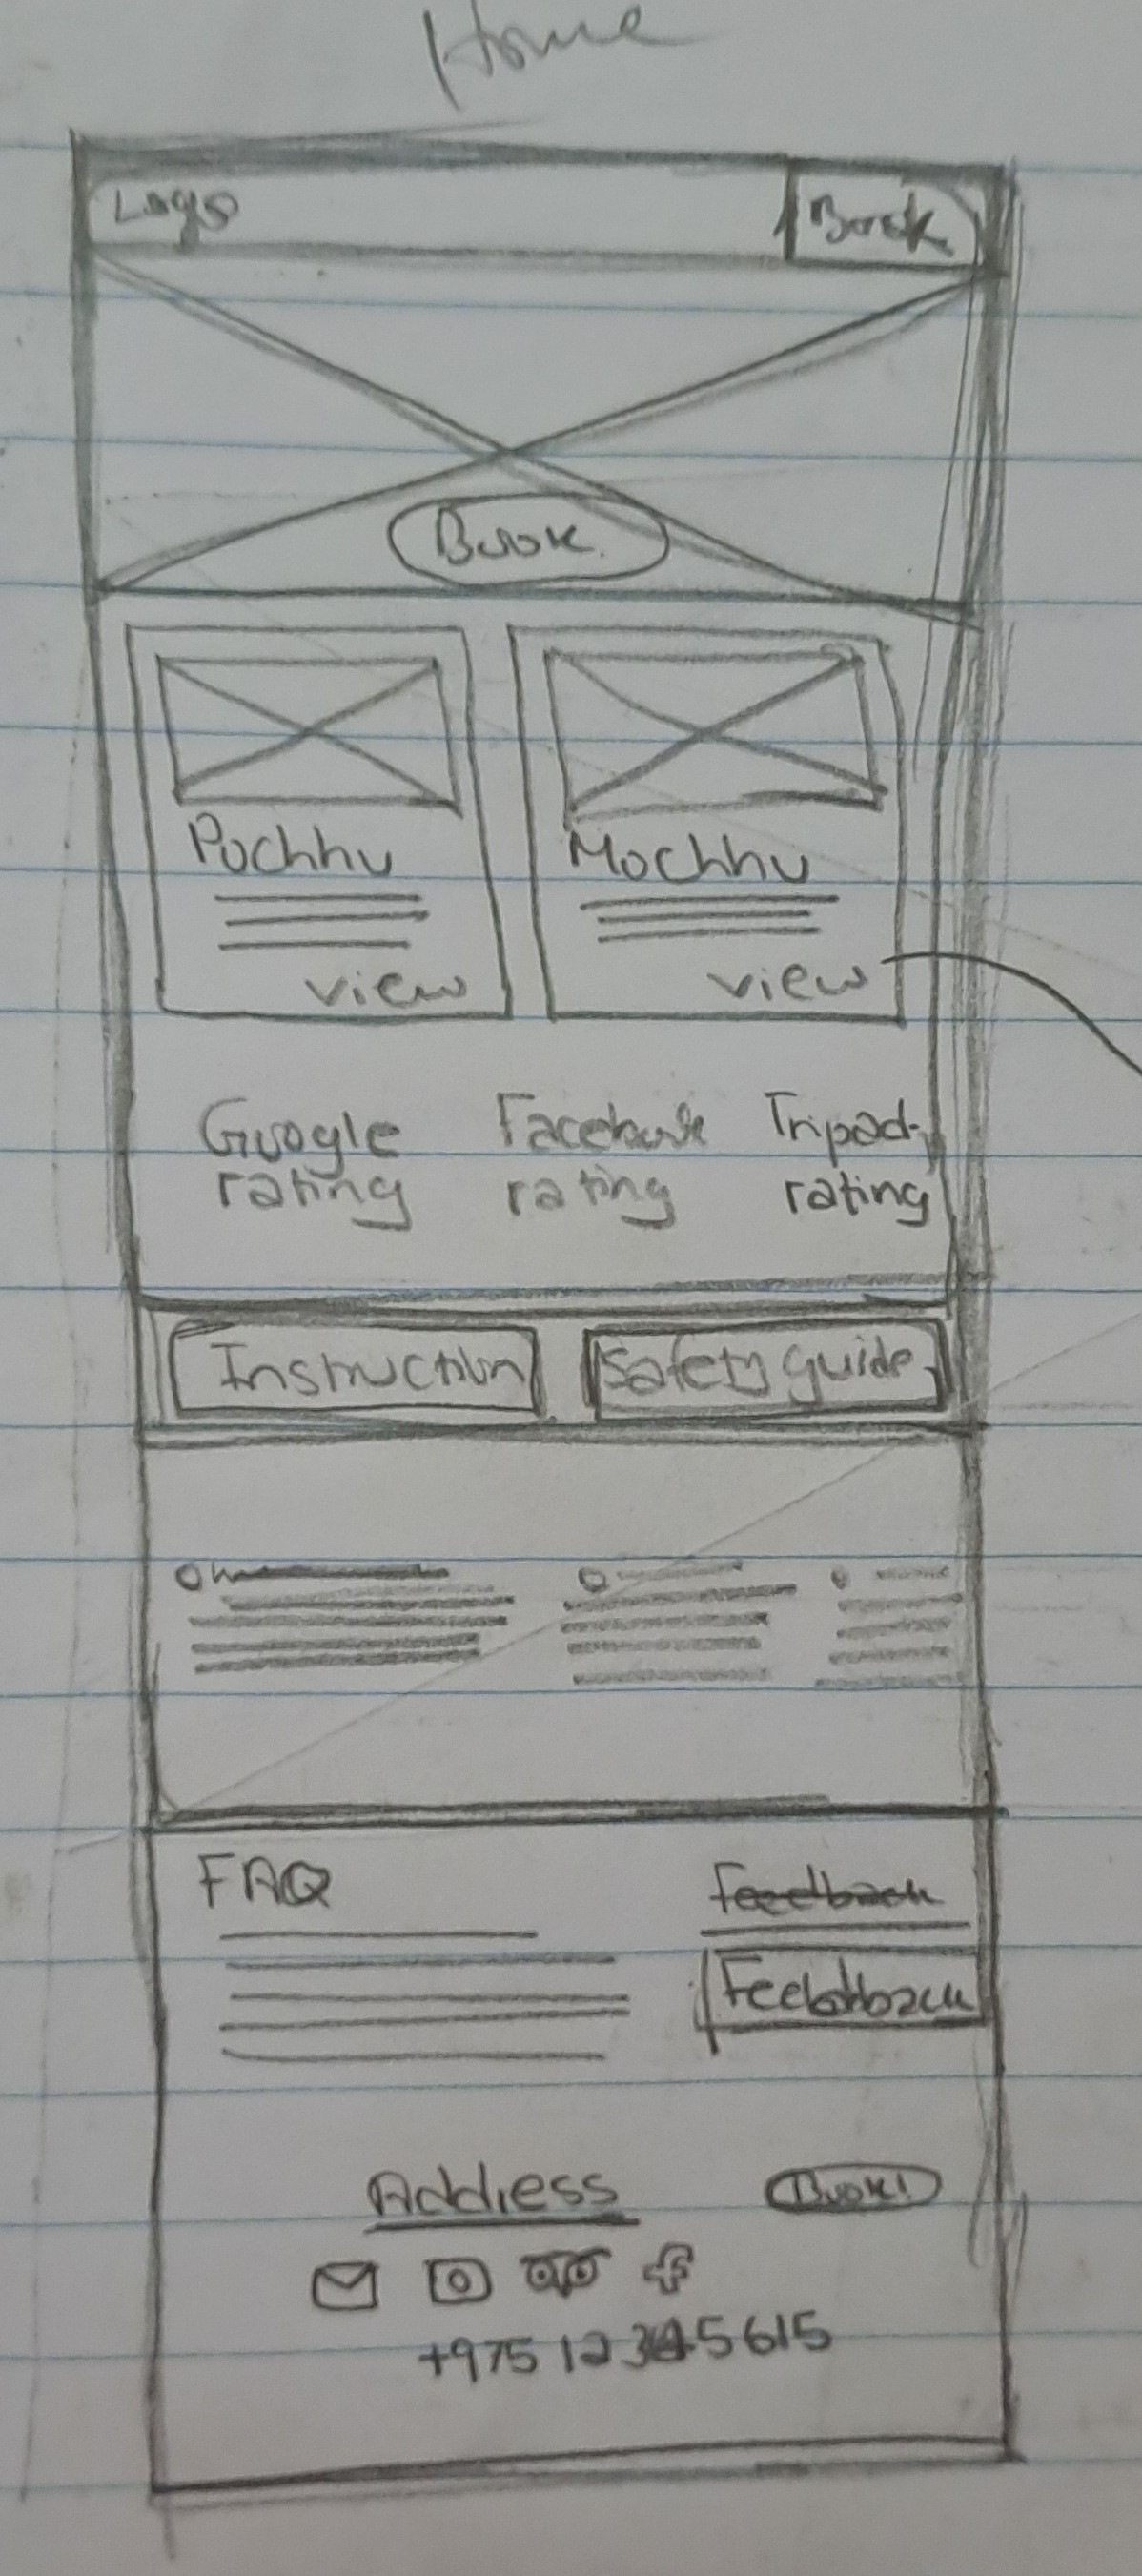 Home
Logo
Book
Book
Pochhu
Mochhu
view
view
Google rating
Facebook rating
Tripad. rating
Instruction
Safety guide
FAQ
Feedback
Feedback
Address
Book!
+975 12345615